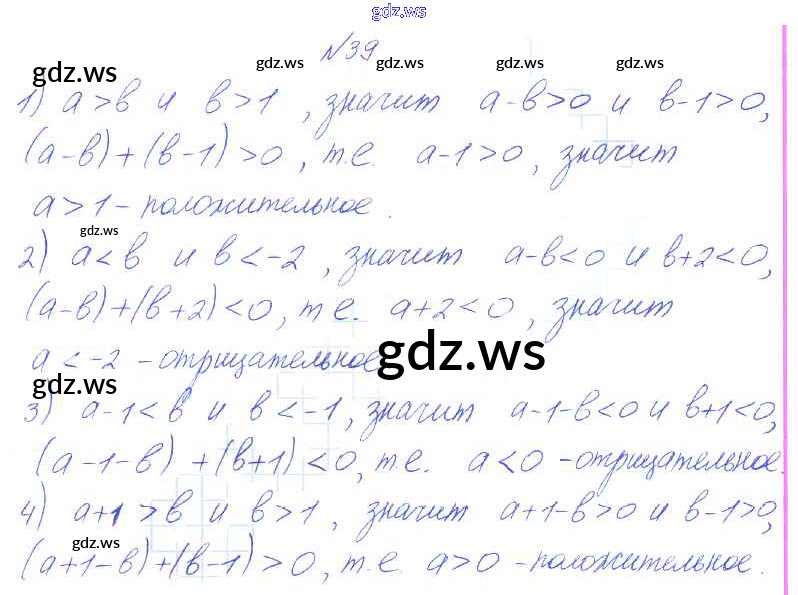 gdz.ws
№39
gdz.ws gdz.ws gdz.ws gdz.ws
1) a>в и в>1, значит a-в>0 и в-1>0,
(a-в)+(в-1)>0, т.е. a-1>0, значит
a>1 - положительное.
gdz.ws
2) a<в и в<-2, значит a-в<0 и в+2<0,
(a-в)+(в+2)<0, т.е. a+2<0, значит
a<-2 - отрицательное
gdz.ws
gdz.ws
3) a-1<в и в<-1, значит a-1-в<0 и в+1<0,
(a-1-в)+(в+1)<0, т.е. a<0 - отрицательное.
4) a+1>в и в>1, значит a+1-в>0 и в-1>0,
gdz.ws
(a+1-в)+(в-1)>0, т.е. a>0 - положительное.